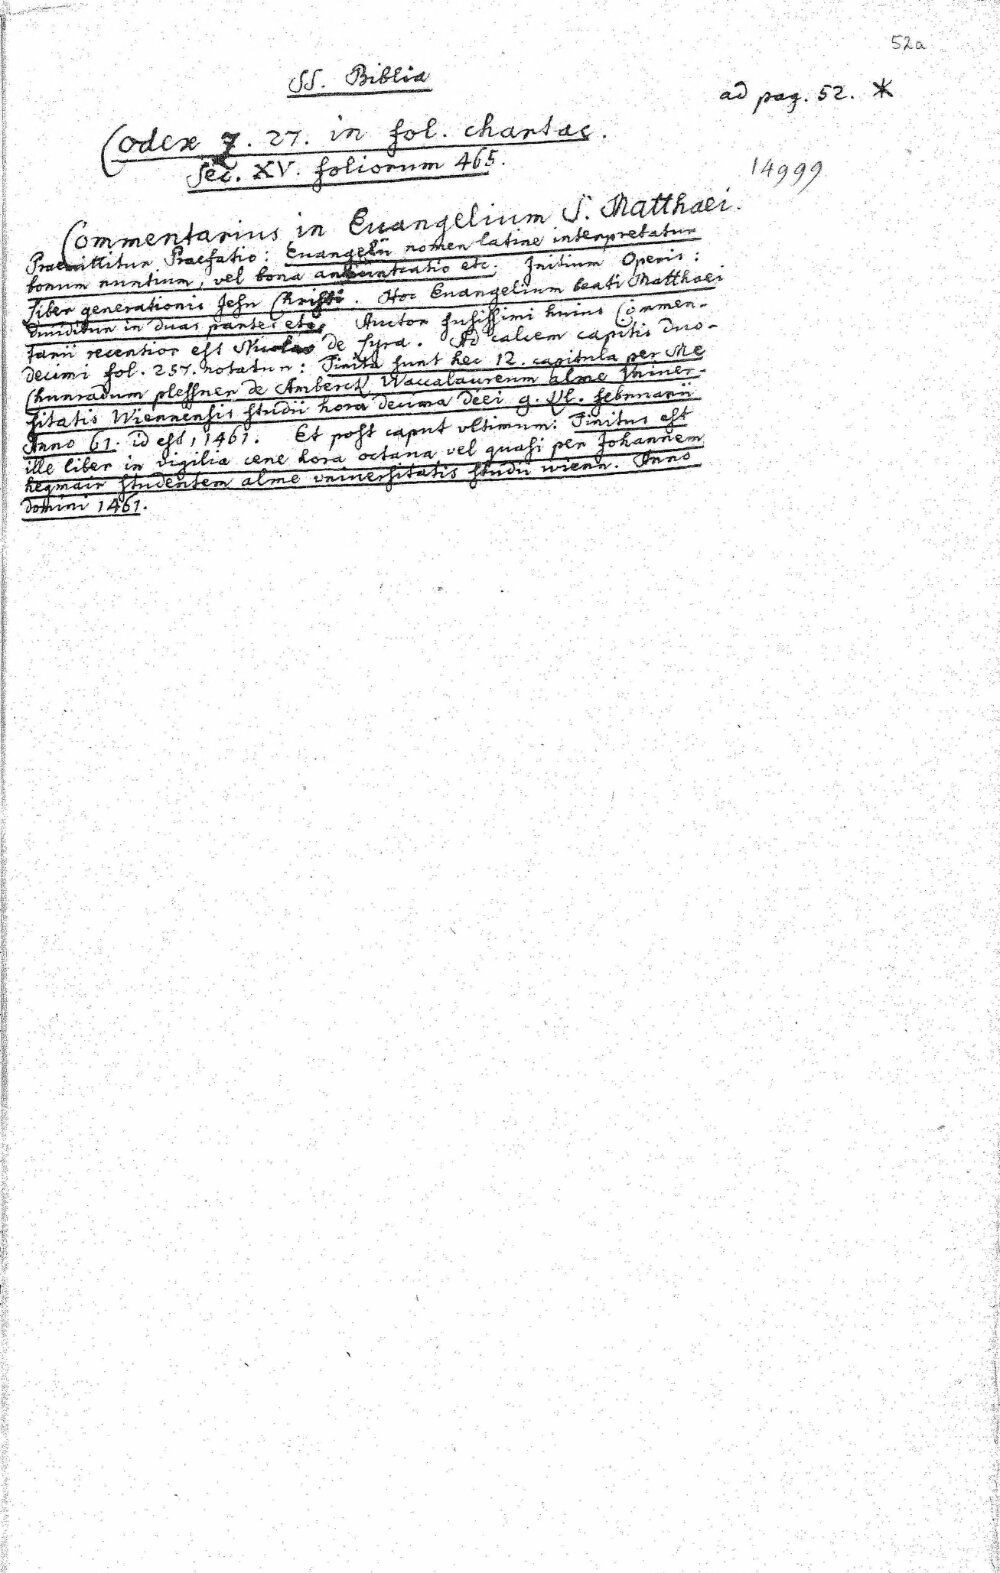 52a
SS. Biblia
ad pag. 52. *
Codex 7. 27. in fol. chartac.
Sec. XV. foliorum 465.
14999
Commentarius in Euangelium S. Matthaei.
Praemittitur Praefatio: Euangelii nomen latine interpretatur
bonum nuntium, vel bona annuntiatio etc. Initium Operis:
Liber generationis Jesu Christi. Hoc Euangelium beati Matthaei
diuiditur in duas partes etc. Auctor fusissimi huius Commen-
tarii recentior est Nicolao de Lyra. Ad calcem capitis duo-
decimi fol. 257. notatur: Finita sunt hec 12. capitula per Me
Chunradum plessner de Amberck Waccalaureum alme Vniuer-
sitatis Wiennensis studii hora decima diei 9. Vl. februarii
Anno 61. id est, 1461. Et post caput vltimum: Finitus est
ille liber in vigilia cene hora octaua vel quasi per Johannem
hegmair studentem alme vniuersitatis studii wienn. Anno
domini 1461.